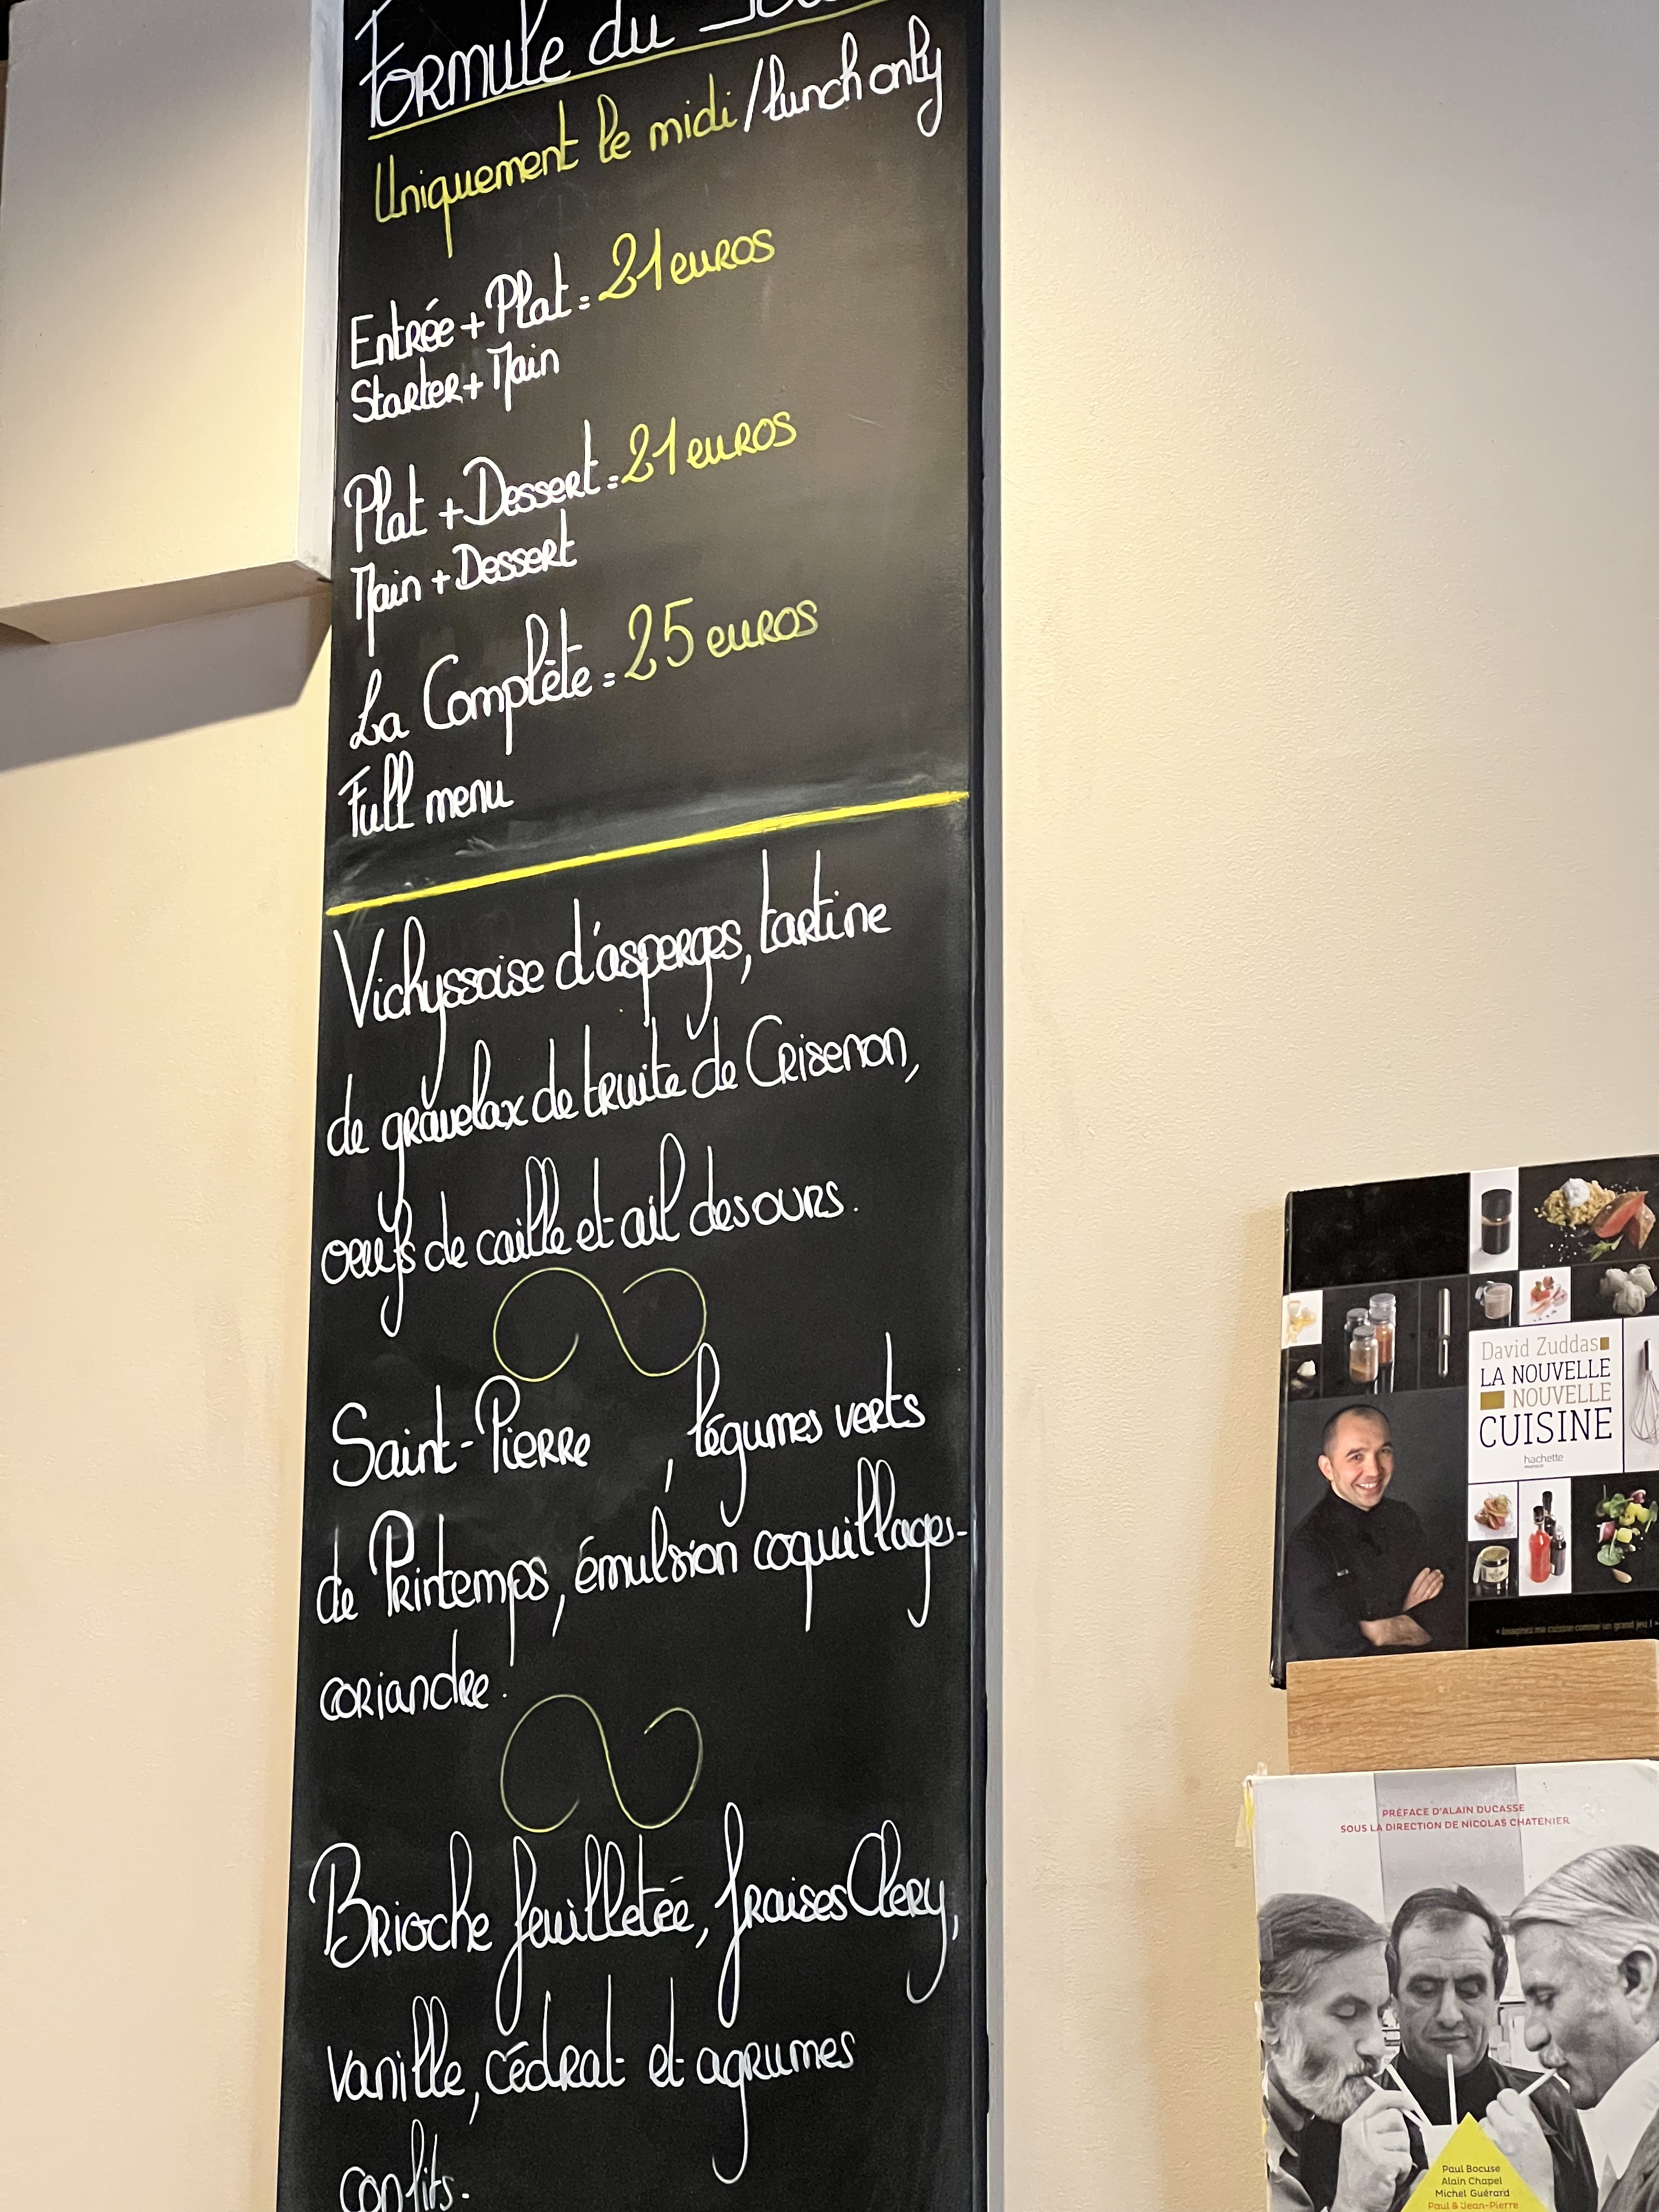 Formule du
Uniquement le midi/lunch only
Entrée + Plat = 21 euros
Starter + Main
Plat + Dessert = 21 euros
Main + Dessert
La Complète = 25 euros
Full menu
Vichyssoise d'asperges, tartine
de gravelax de truite de Crisenon,
oeufs de caille et ail des ours.
Saint-Pierre , légumes verts
de Printemps, émulsion coquillages-
coriandre.
Brioche feuilletée, fraises Clery,
vanille, cédrat et agrumes
confits.
David Zuddas
LA NOUVELLE
NOUVELLE
CUISINE
hachette
« Imaginez ma cuisine comme un grand jeu ! »
PRÉFACE D'ALAIN DUCASSE
SOUS LA DIRECTION DE NICOLAS CHATENIER
Paul Bocuse
Alain Chapel
Michel Guérard
Paul & Jean-Pierre